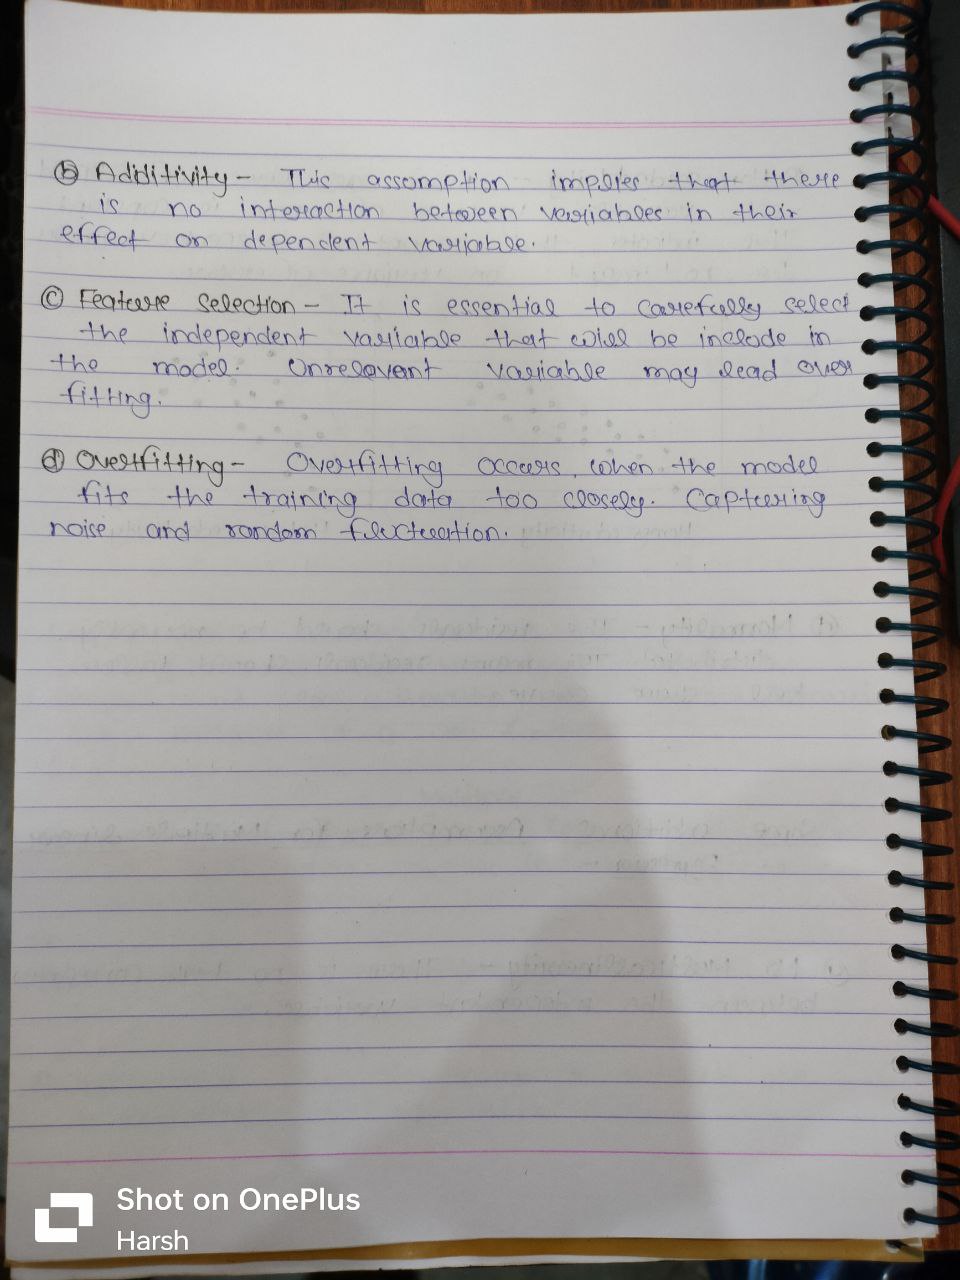 ⓑ Additivity - This assomption implies that there
is no interaction between variables in their
effect on dependent variable.
ⓒ Feature selection - It is essential to carefully select
the independent variable that will be include in
the model. Unrelevant variable may lead over
fitting.
ⓓ Overfitting - Overfitting occurs, when the model
fits the training data too closely. Capturing
noise and random fluctuation.
Shot on OnePlus
Harsh